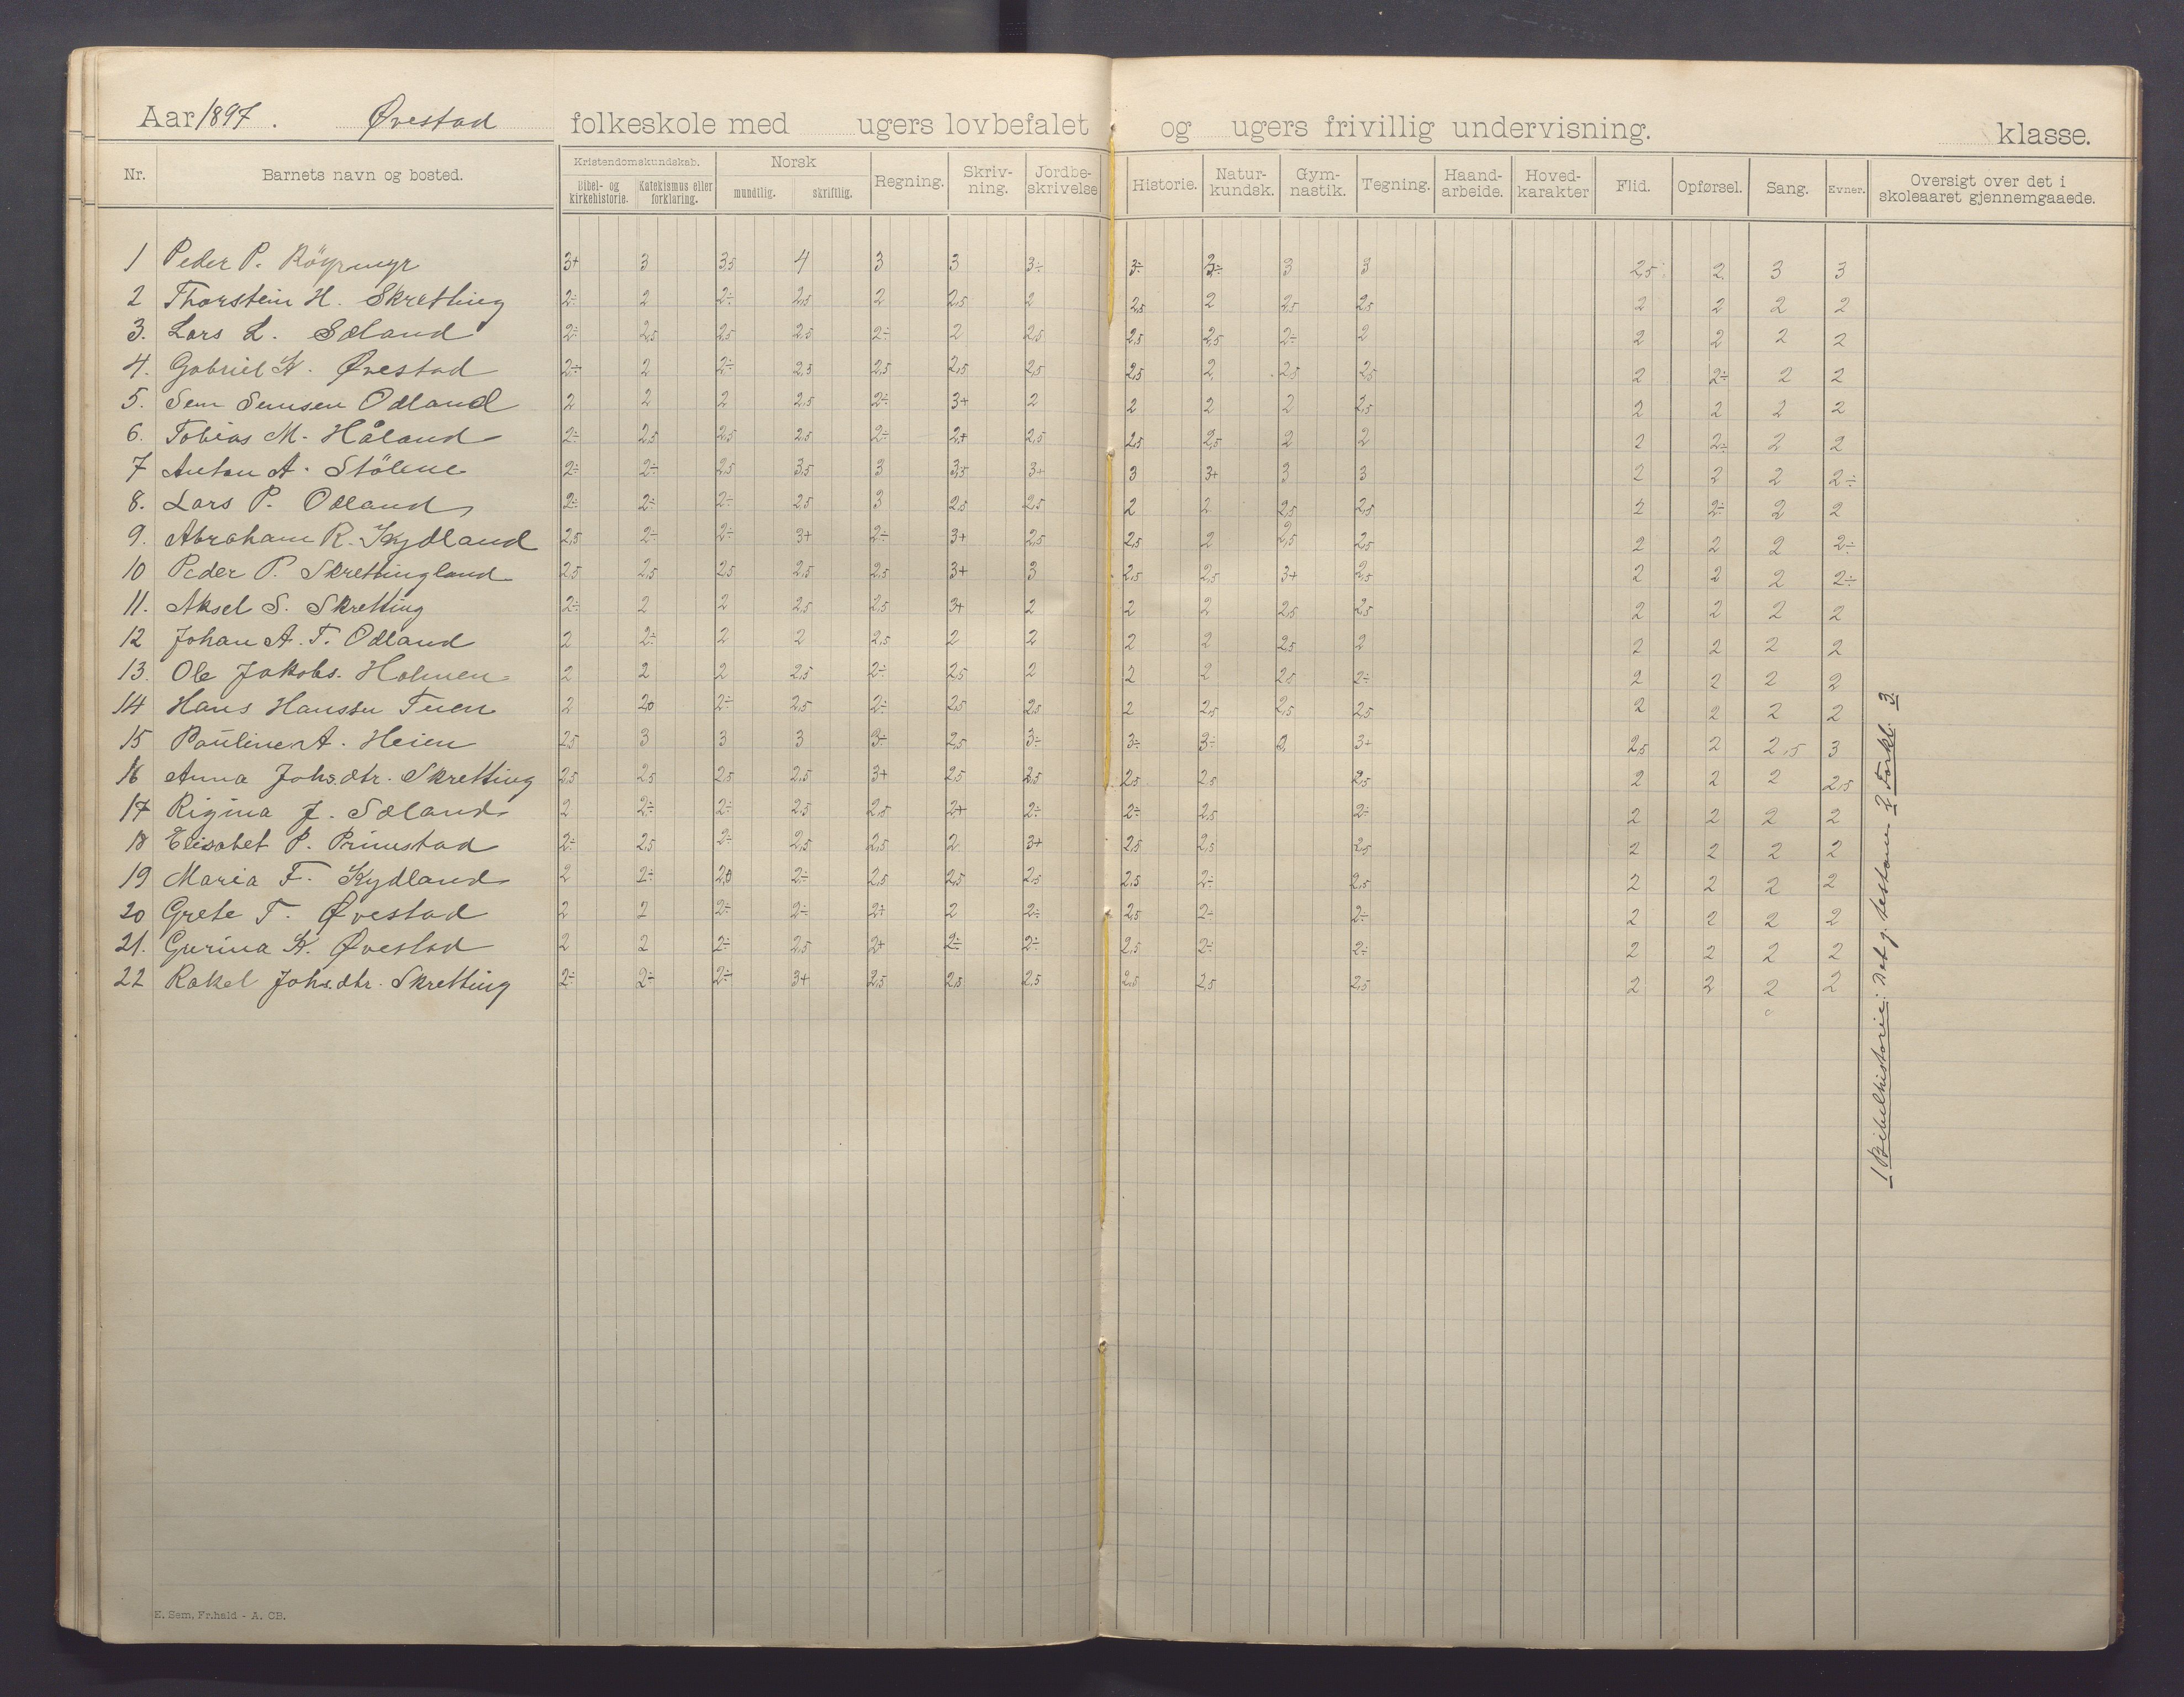 Aar 1897. Øvestad folkeskole med ugers lovbefalet og ugers frivillig undervisning. klasse.
Nr. Barnets navn og bosted. Kristendomskundskab. Bibel- og kirkehistorie. Katekismus eller forklaring. Norsk mundtlig. skriftlig. Regning. Skriv-ning. Jordbe-skrivelse Historie. Natur-kundsk. Gym-nastik. Tegning. Haand-arbeide. Hoved-karakter Flid. Opførsel. Sang. Evner. Oversigt over det i skoleaaret gjennemgaaede.
1 Peder P. Röyrmyr 3+ 3 3,5 4 3 3 3÷ 3÷ 3÷ 3 3 2,5 2 3 3
2 Thorstein H. Skretting 2÷ 2 2÷ 2,5 2 2,5 2 2,5 2 2,5 2,5 2 2 2 2
3. Lars L. Sæland 2÷ 2,5 2,5 2,5 2÷ 2 2,5 2,5 2,5 2÷ 2 2 2 2 2
4. Gabriel K. Øvestad 2÷ 2 2÷ 2,5 2,5 2,5 2,5 2,5 2 2,5 2,5 2 2÷ 2 2
5. Sem Semsen Odland 2 2 2 2,5 2÷ 3+ 2 2 2 2 2,5 2 2 2 2
6. Tobias M. Håland 2÷ 2,5 2,5 2,5 2÷ 2+ 2,5 2,5 2,5 2 2 2 2÷ 2 2
7 Anton A. Stölene 2÷ 2÷ 2,5 3,5 3 3,5 3+ 3 3+ 3 3 2 2 2 2÷
8. Lars P. Odland 2÷ 2÷ 2÷ 2,5 3 2,5 2,5 2 2 2,5 2,5 2 2÷ 2 2
9. Abraham R. Kydland 2,5 2÷ 2÷ 3+ 2÷ 3+ 2,5 2,5 2 2,5 2,5 2 2 2 2÷
10 Peder P. Skrettingland 2,5 2,5 2,5 2,5 2,5 3+ 3 2,5 2,5 3+ 2,5 2 2 2 2÷
11. Aksel S. Skretting 2÷ 2 2 2,5 2,5 3+ 2 2 2 2,5 2,5 2 2 2 2
12 Johan A. T. Odland 2 2÷ 2 2 2,5 2 2 2 2 2,5 2 2 2 2 2
13. Ole Jakobs. Holmen 2 2 2 2,5 2÷ 2,5 2 2 2 2,5 2÷ 2 2 2 2
14 Hans Hanssen Tuen 2 2,0 2÷ 2,5 2÷ 2,5 2,5 2 2,5 2,5 2,5 2 2 2 2
15 Pauline A. Heien 2,5 3 3 3 3÷ 2,5 3÷ 3÷ 3÷ 2 3+ 2,5 2 2,5 3
16 Anna Johs.dtr. Skretting 2,5 2,5 2,5 2,5 3+ 2,5 2,5 2,5 2,5 2,5 2 2 2 2,5
17 Rigina J. Sæland 2 2÷ 2÷ 2,5 2,5 2+ 2÷ 2÷ 2,5 2÷ 2 2 2 2
18 Elisabet P. Primstad 2÷ 2,5 2÷ 2,5 2,5 2 3+ 2,5 2,5 2,5 2 2 2 2
19 Maria F. Kydland 2 2÷ 2,0 2÷ 2,5 2,5 2,5 2,5 2÷ 2,5 2 2 2 2
20 Grete T. Øvestad 2 2 2÷ 2÷ 2+ 2 2÷ 2,5 2÷ 2÷ 2 2 2 2
21. Gurina K. Øvestad 2 2 2÷ 2,5 2+ 2÷ 2÷ 2,5 2÷ 2÷ 2 2 2 2
22 Rakel Johs.dtr. Skretting 2÷ 2÷ 2÷ 3+ 2,5 2,5 2,5 2,5 2,5 2,5 2 2 2 2
1 Bibelhistorie: Det g. testam. 2 Forkl. 3
E. Sem, Fr.hald - A. CB.